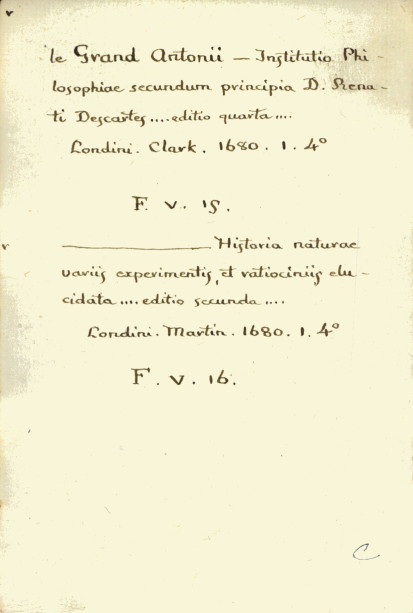 v
le Grand Antonii — Institutio Phi-
losophiae secundum principia D. Rena-
ti Descartes.... editio quarta....
Londini. Clark. 1680. 1. 4°
F. V. 15.
v ——— Historia naturae
variis experimentis, et ratiociniis elu-
cidata .... editio secunda....
Londini. Martin. 1680. 1. 4°
F. V. 16.
C